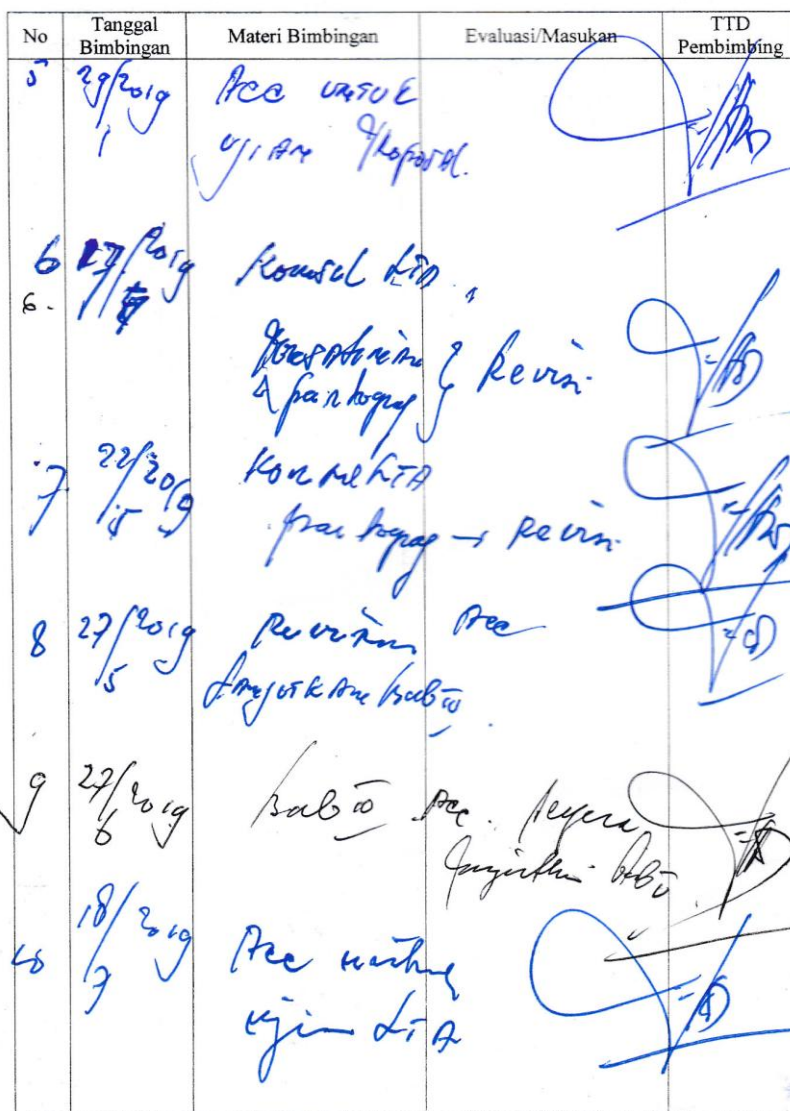 No Tanggal Bimbingan Materi Bimbingan Evaluasi/Masukan TTD Pembimbing
5 29/2019 Acc untuk
1 ujian Proposal.
6 /2019 Konsul LTA
6.
& partograf } Revisi
7 22/2019 Konsul LTA
5 partograf → Revisi
8 27/2019 Acc
5 Lanjutkan bab
9 27/2019 bab Acc. Segera
6 bab
10 18/2019 Acc
7 ujian LTA